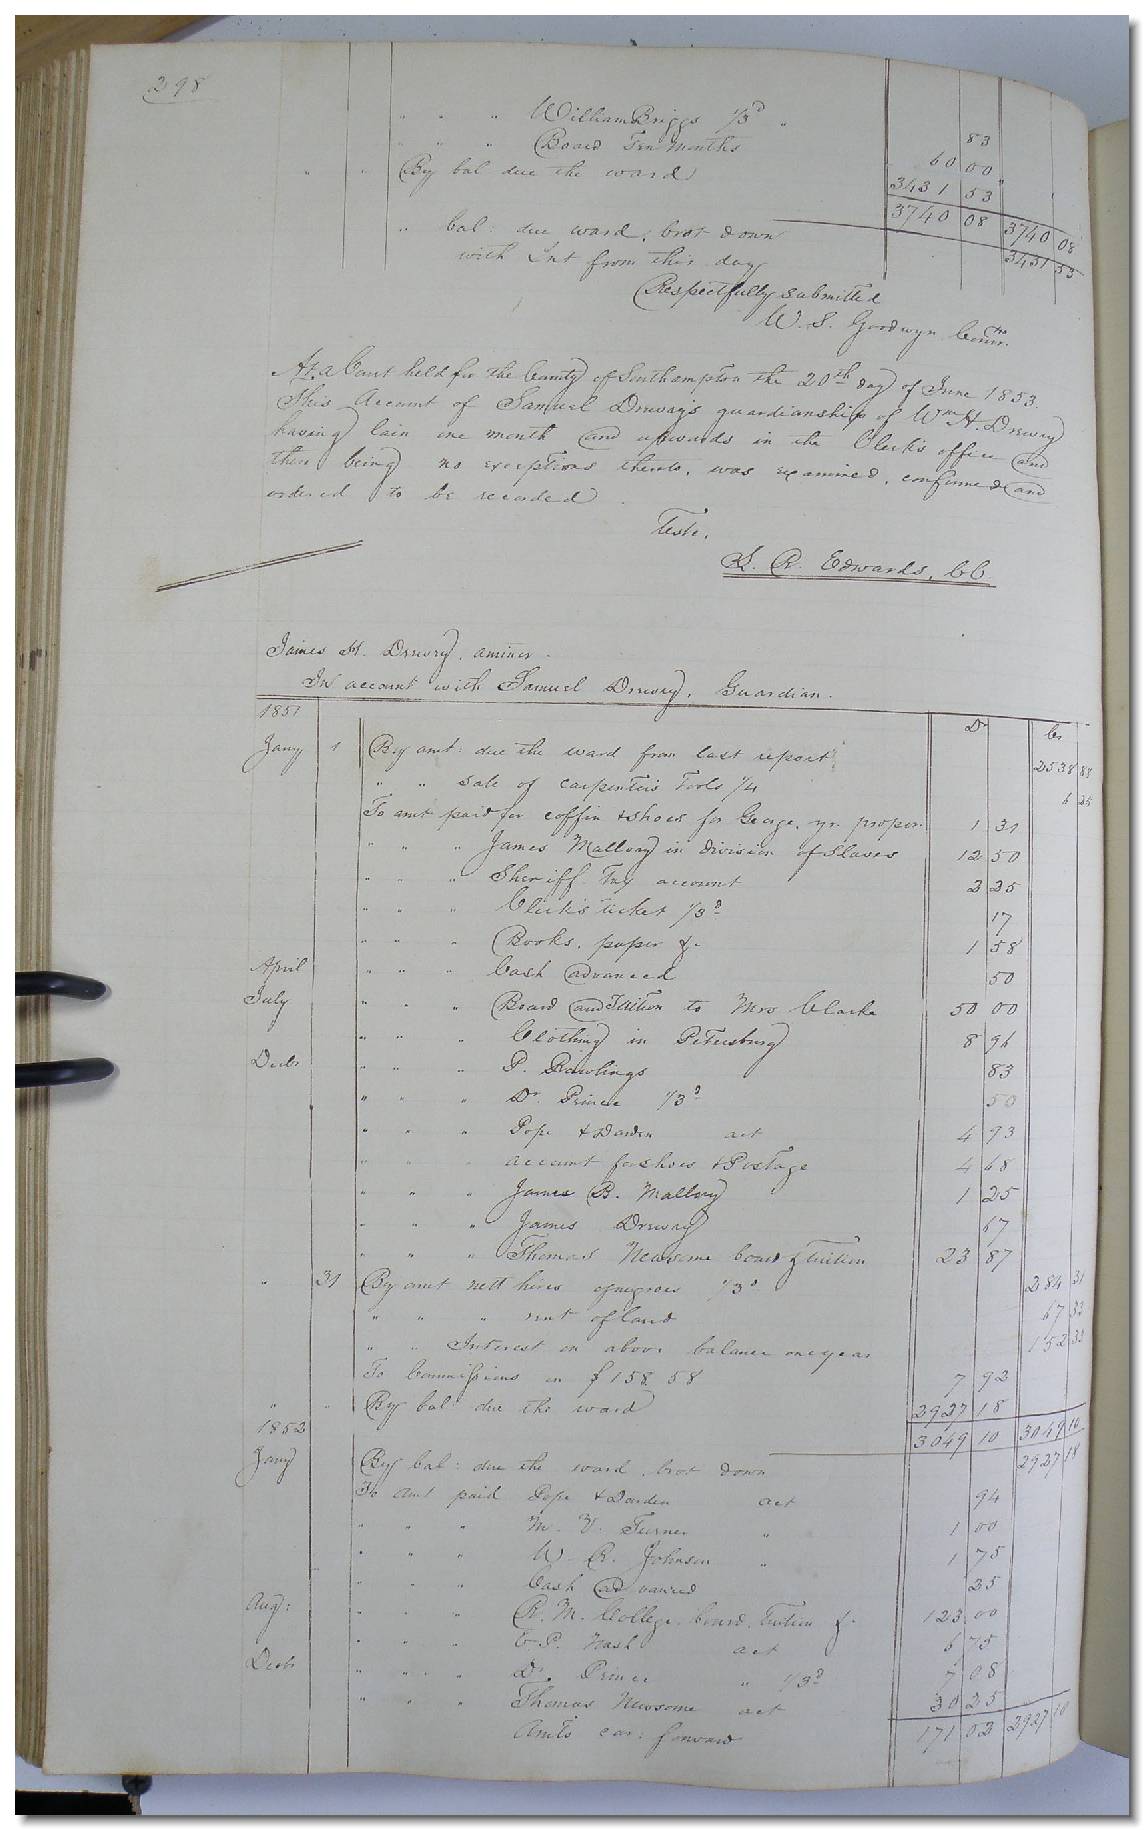 298
" " " William Briggs 1/3d " 83
" " " Board Ten Months 60 00
" " By bal due the ward 3431 53
3740 08 3740 08
" bal: due ward, brot down 3431 53
with Int from this day
Respectfully submitted
W. S. Goodwyn Comr.
At a Court held for the County of Southampton the 20th day of June 1853.
This Account of Samuel Drewry's guardianship of Wm H. Drewry
having lain one month and upwards in the Clerk's office and
there being no exceptions thereto, was examined, confirmed and
ordered to be recorded.
Teste,
L. R. Edwards, CC
James H. Drewry, a minor.
In account with Samuel Drewry, Guardian.
1851 Dr Cr
Jany 1 By amt: due the ward from last report 2538 88
" " sale of carpenters Tools 1/4 6 25
To amt paid for coffin & shoes for George, yr propor 1 31
" " " James Mallory in division of Slaves 12 50
" " " Sheriff Tax account 2 25
" " " Clerk's ticket 1/3d 17
" " " Books, paper &c 1 58
April " " " Cash advanced 50
July " " " Board and Tuition to Mrs Clarke 50 00
" " " Clothing in Petersburg 8 96
Decb " " " P. Rawlings 83
" " " Dr Prince 1/3d 50
" " " Pope & Darden act 4 93
" " " account for shoes & Postage 4 68
" " " James B. Mallory 1 25
" " " James Drewry 67
" " " Thomas Newsome board & tuition 23 87
" 31 By amt nett hires of negroes 1/3d 284 31
" " " rent of land 67 33
" " Interest on above balance one year 152 33
To Commissions on $158.58 7 92
" " By bal due the ward 2927 18
1852 3049 10 3049 10
Jany By bal: due the ward, brot down 2927 18
To amt paid Pope & Darden act 94
" " " M. V. Turner " 1 00
" " " W. R. Johnson " 1 75
" " " Cash advanced 25
Aug: " " " R. M. College, board, tuition &c 123 00
" " " E. P. Nash act 6 75
Decb " " " Dr. Prince " 1/3d 7 08
" " " Thomas Newsome act 30 25
Amts car: forward 171 02 2927 18